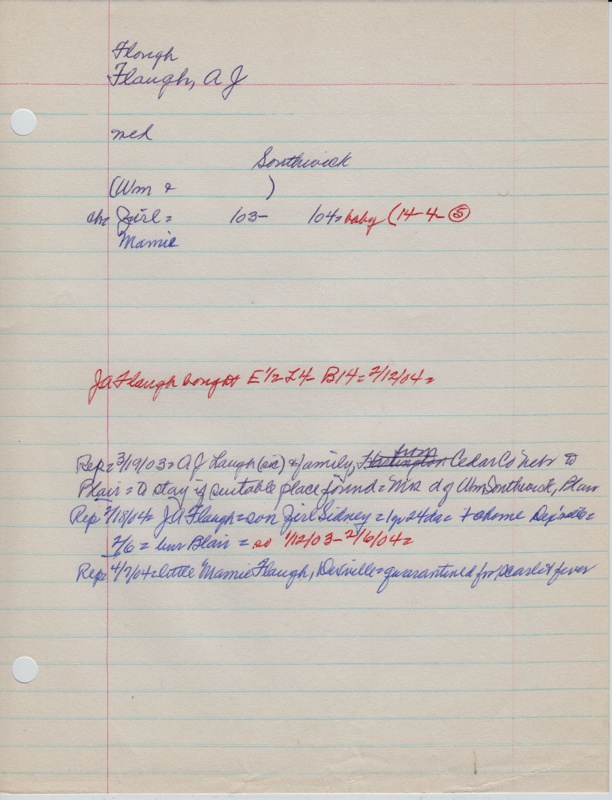 Flough
Flaugh, A J
med
Southwick
(Wm & )
chr Girl = 103- 104= baby (14-4 ⑤
Mamie
JA Flaugh bought E 1/2 L4- B14= 2/12/04=
Rep= 3/19/03= A J Laugh (sic) & family, from Cedar Co Nebr to
Blair = to stay if suitable place found = Mrs d of Wm Southwick, Blair
Rep 2/10/04= JA Flaugh = son Sidney = 1yr 24da = home
2/6 = bur Blair = so 1/12/03-2/6/04=
Rep= 4/7/04= little Mamie Flaugh, = quarantined for scarlet fever